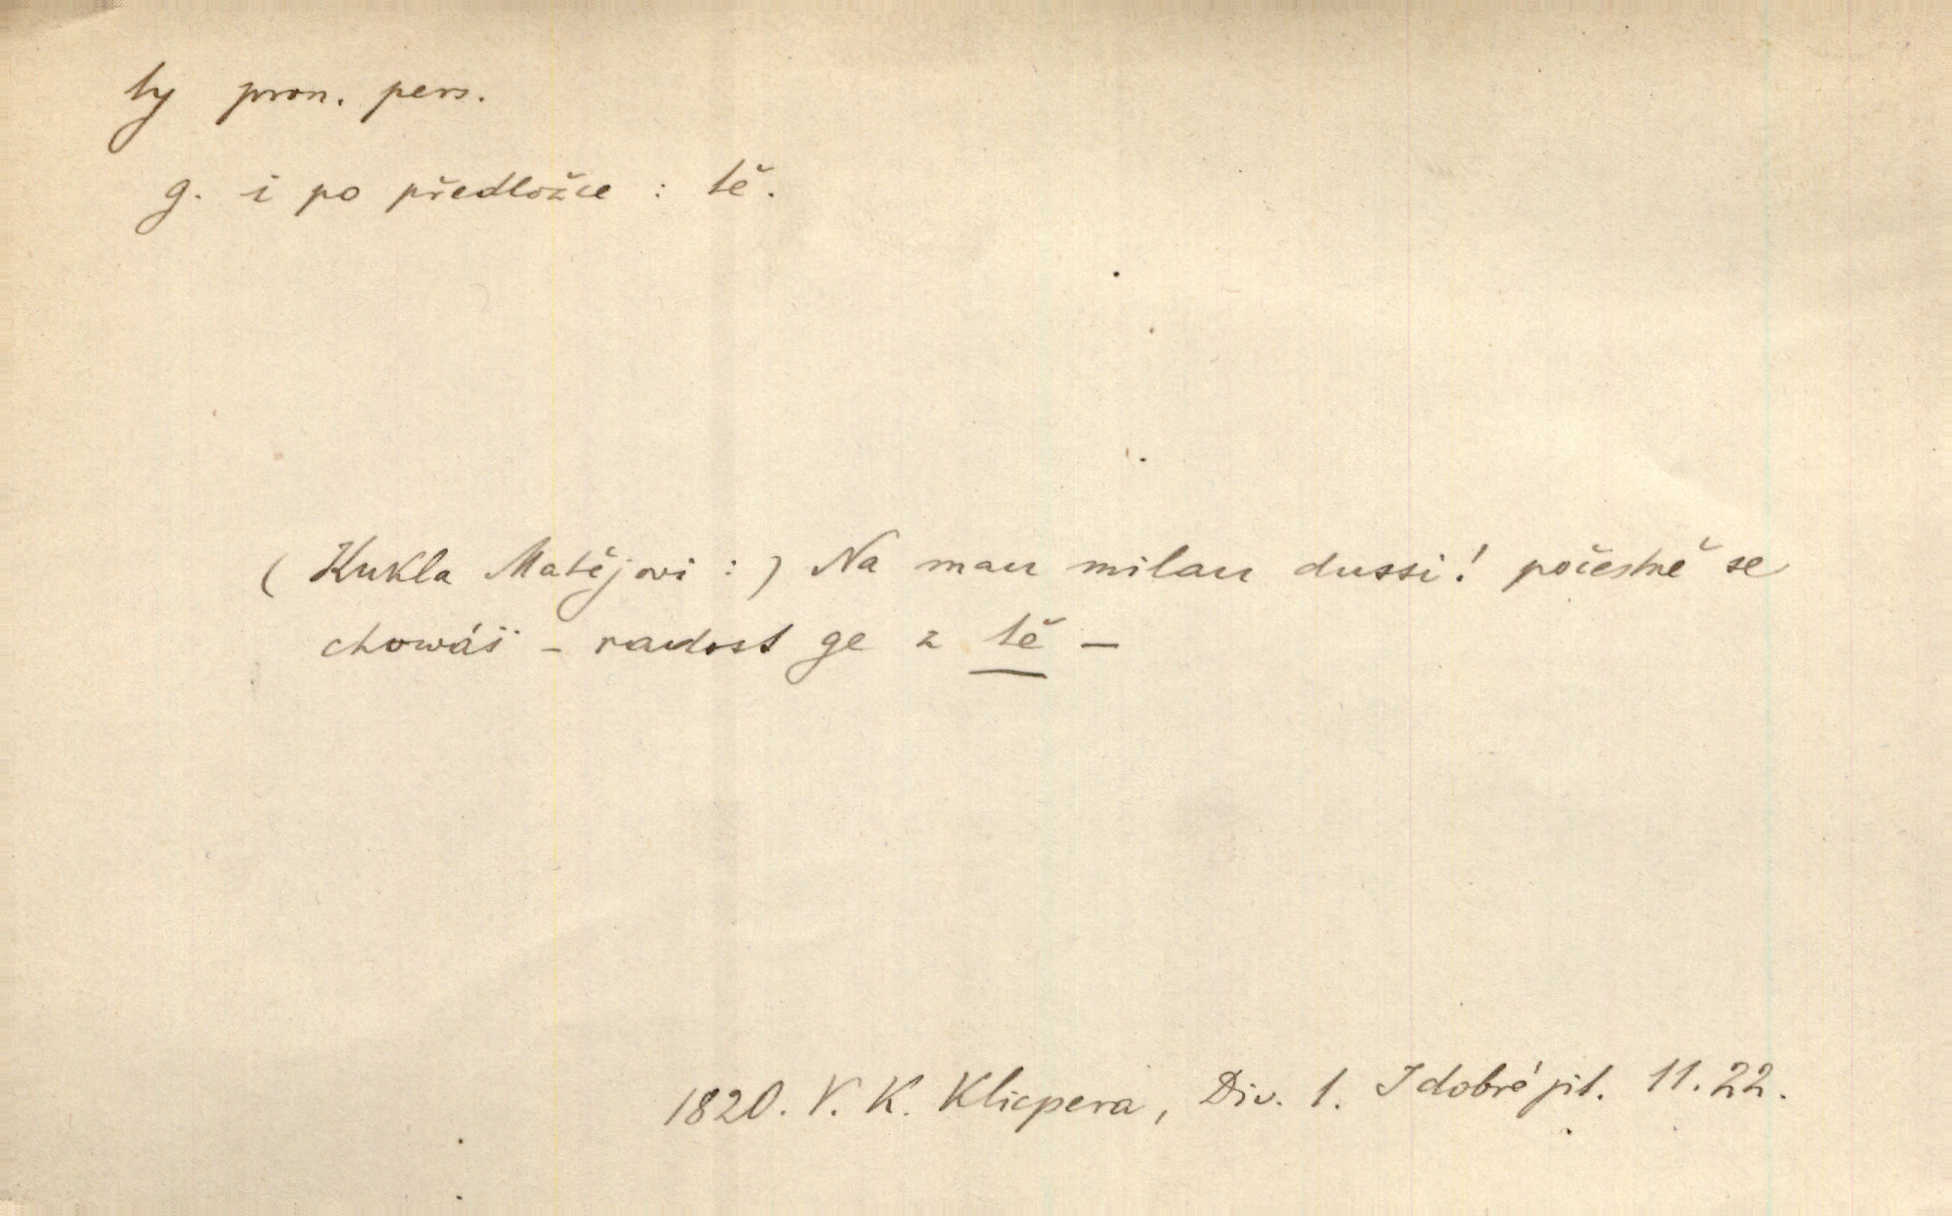 ty pron. pers.
g. i po předložce : tě.
( Kukla Matějovi : ) Na mau milau dussi! počestně se
chowáš - radost ge z tě -
1820. V. K. Klicpera, Div. 1. I dobré jit. 11. 22.